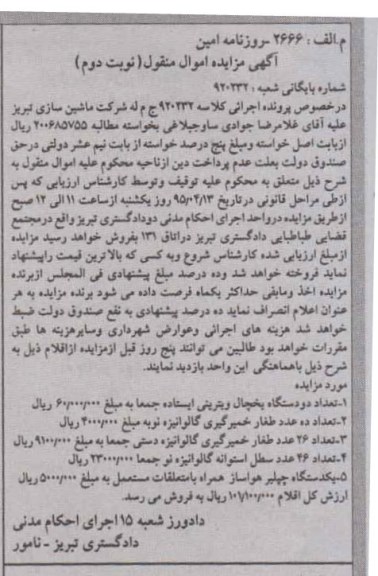 م.الف : ۲۶۶۶ -روزنامه امین
آگهی مزایده اموال منقول( نوبت دوم)
شماره بایگانی شعبه : ۹۲۰۲۳۲
درخصوص پرونده اجرائی کلاسه ۹۲۰۲۳۲ ج م له شرکت ماشین سازی تبریز
علیه آقای غلامرضا جوادی ساوجبلاغی بخواسته مطالبه ۲۰۰۶۸۵۷۵۵ ریال
ازبابت اصل خواسته ومبلغ پنج درصد خواسته از بابت نیم عشر دولتی درحق
صندوق دولت بعلت عدم پرداخت دین ازناحیه محکوم علیه اموال منقول به
شرح ذیل متعلق به محکوم علیه توقیف وتوسط کارشناس ارزیابی که پس
ازطی مراحل قانونی درتاریخ ۹۵/۰۴/۱۳ روز یکشنبه ازساعت ۱۱ الی ۱۲ صبح
ازطریق مزایده درواحد اجرای احکام مدنی دودادگستری تبریز واقع درمجتمع
قضایی طباطبایی دادگستری تبریز دراتاق ۱۳۱ بفروش خواهد رسید مزایده
ازمبلغ ارزیابی شده کارشناس شروع وبه کسی که بالاترین قیمت راپیشنهاد
نماید فروخته خواهد شد وده درصد مبلغ پیشنهادی فی المجلس ازبرنده
مزایده اخذ ومابقی حداکثر یکماه فرصت داده می شود برنده مزایده به هر
عنوان اعلام انصراف نماید ده درصد پیشنهادی به نفع صندوق دولت ضبط
خواهد شد هزینه های اجرائی وعوارض شهرداری وسایرهزینه ها طبق
مقررات خواهد بود طالبین می توانند پنج روز قبل ازمزایده ازاقلام ذیل به
شرح ذیل باهماهنگی این واحد بازدید نمایند.
مورد مزایده
۱-تعداد دودستگاه یخچال ویترینی ایستاده جمعا به مبلغ ۶۰/۰۰۰/۰۰۰ ریال
۲-تعداد ده عدد طغار خمیرگیری گالوانیزه نوبه مبلغ ۴۰۰۰/۰۰۰ ریال
۳-تعداد ۲۶ عدد طغار خمیرگیری گالوانیزه دستی جمعا به مبلغ ۹۱۰۰/۰۰۰ ریال
۴-تعداد ۴۶ عدد سطل استوانه گالوانیزه نو جمعا ۲۳۰۰۰/۰۰۰ ریال
۵-یکدستگاه چیلیر هواساز همراه بامتعلقات مستعمل به مبلغ ۵۰۰۰/۰۰۰ ریال
ارزش کل اقلام ۱۰۷/۱۰۰/۰۰۰ ریال به فروش می رسد.
دادورز شعبه ۱۵ اجرای احکام مدنی
دادگستری تبریز - نامور